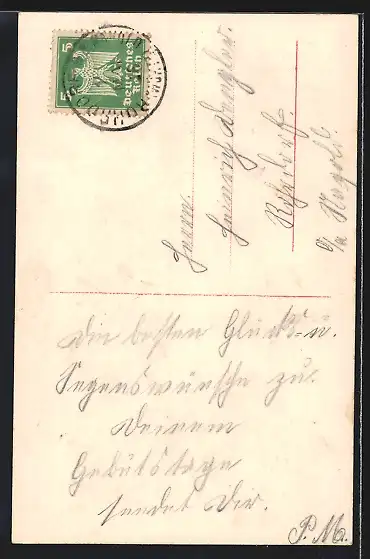 5 5
Deutsches
Reich
Herrn
Heinrich
Rohrdorf.
Die besten Glücks- u.
Segenswünsche zu
Deinem
Gebutstage
sendet Dir.
P. M.